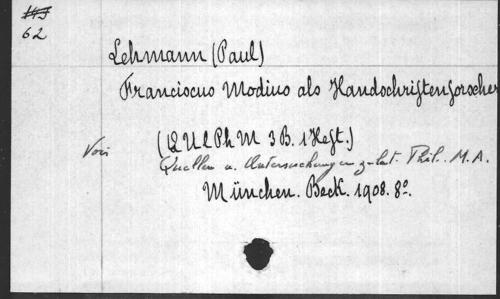 62
Lehmann (Paul)
Franciscus Modius als Handschriftenforscher
(Q U L Ph M 3 B. 1 Heft.)
Voir Quellen u. Untersuchungen z. lat. Phil. M.A.
München. Beck. 1908. 8º.